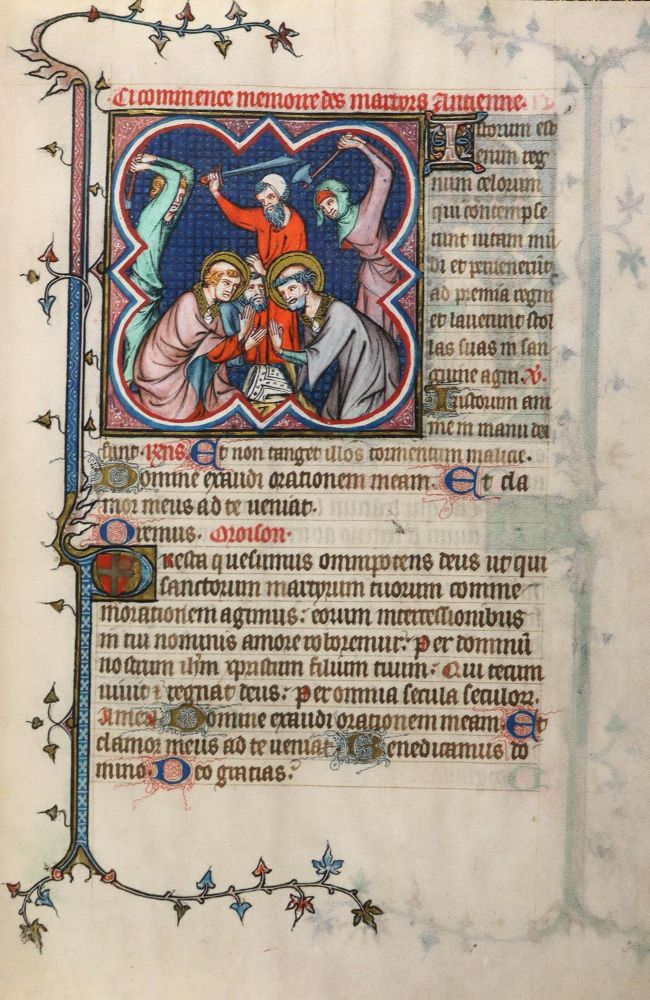 Ci commence memoire des martyrs Antienne.
Istorum est
enim reg
num celorum
qui contempse
runt uitam mū
di et peruenerūt
ad premia regni
et lauerunt stol
las suas in san
guine agni. V.
Iustorum ani
me in manu dei
sunt. Rens. Et non tanget illos tormentum malicie.
Domine exaudi orationem meam. Et cla
mor meus ad te ueniat.
Oremus. Oroison.
Presta quesumus omnipotens deus ut qui
sanctorum martyrum tuorum comme
morationem agimus: eorum intercessionibus
in tui nominis amore roboremur. Per dominū
nostrum ihm xpristum filium tuum. Qui tecum
uiuit et regnat deus. Per omnia secula seculorz.
Amen. Domine exaudi orationem meam. Et
clamor meus ad te ueniat. Benedicamus do
mino. Deo gratias.